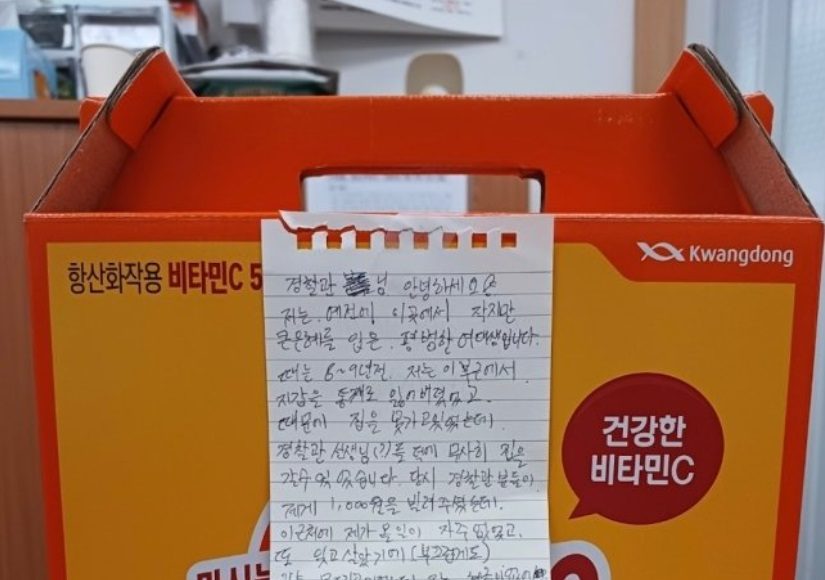 Kwangdong
항산화작용 비타민C 5
경찰관 님 안녕하세요
저는 예전에 이곳에서 작지만
큰은혜를 입은 평범한 여대생입니다.
때는 8~9년전 저는 이부근에서
지갑을 통째로 잃어버렸었고.
때문에 집을 못가고있었는데.
경찰관 선생님(?)들 덕에 무사히 집을
갈수 있었습니다. 당시 경찰관분들이
제게 1,000원을 빌려주셨는데.
이근처에 제가 올일이 자주 없었고.
또 잊고살았기에 (부끄럽게도)
건강한
비타민C
마시는